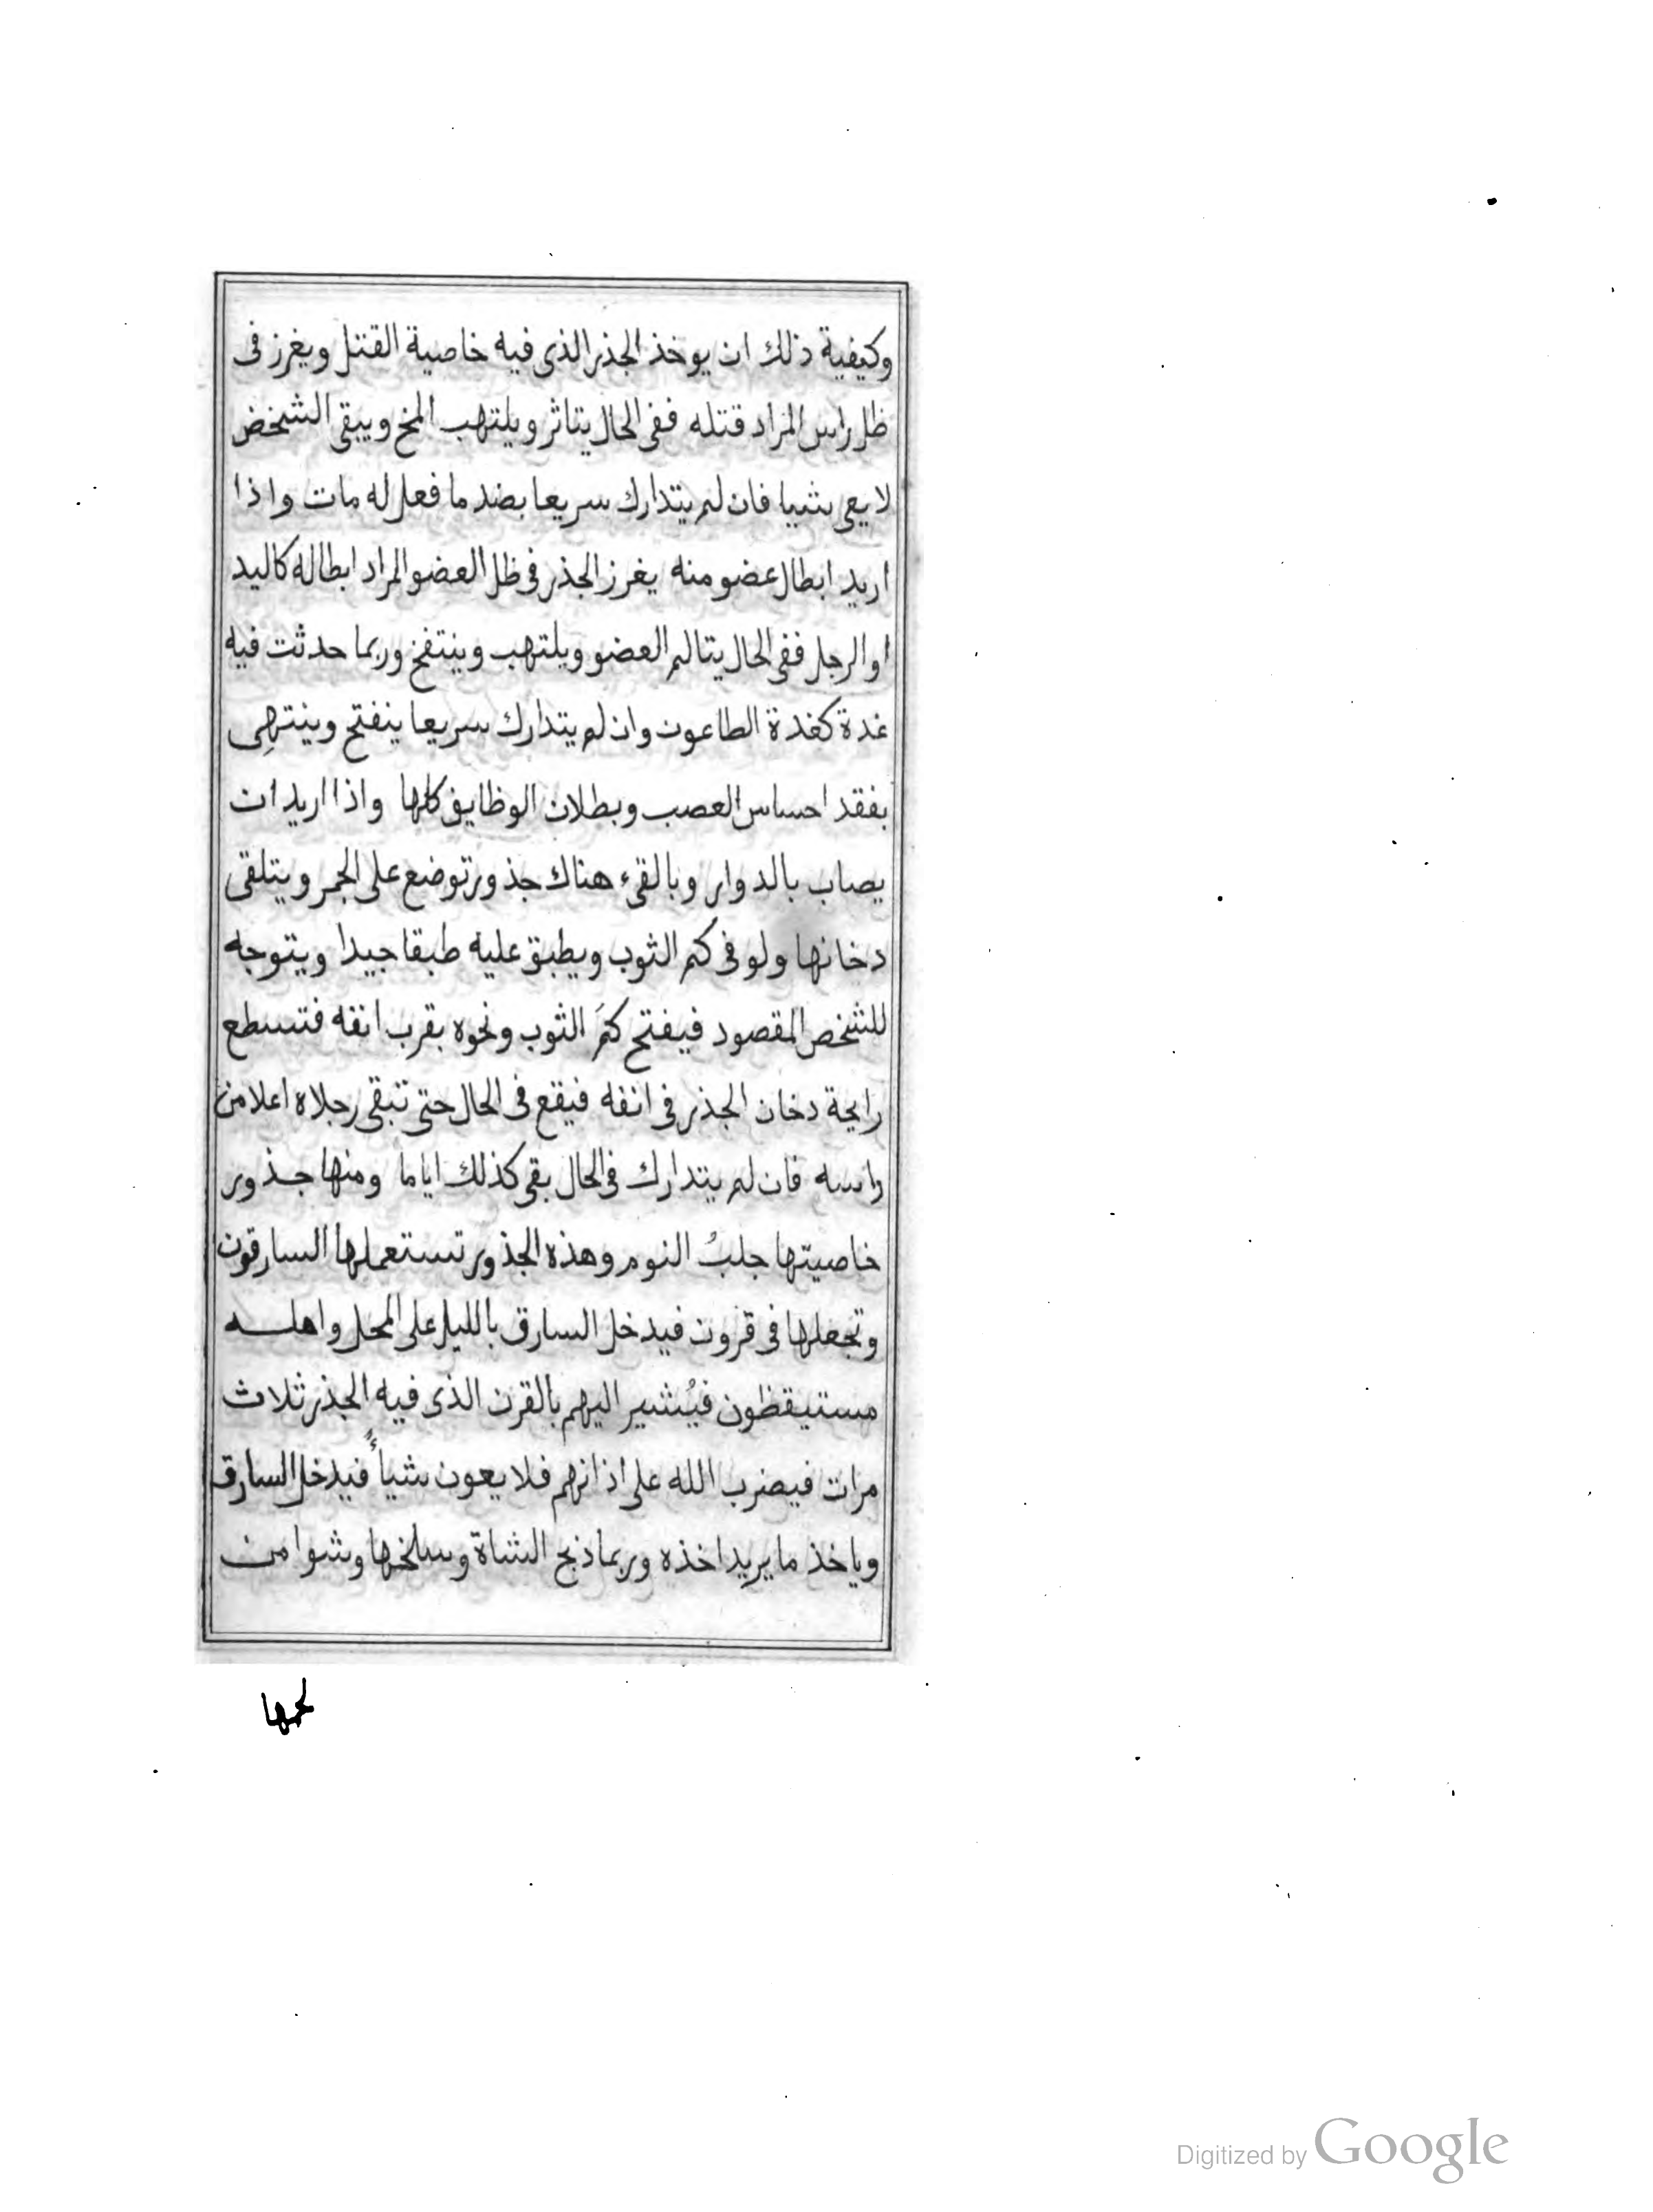 وكيفية ذلك ان يوخذ الجذر الذى فيه خاصية القتل ويغرز فى
ظل راس المراد قتله ففى الحال يتاثر ويلتهب المخ ويبقى الشخص
لا يعى شيا فان لم يتدارك سريعا بضد ما فعل له مات واذا
اريد ابطال عضو منه يغرز الجذر فى ظل العضو المراد ابطاله كاليد
او الرجل ففى الحال يتالم العضو ويلتهب وينتفخ وربما حدثت فيه
غدة كغدة الطاعون وان لم يتدارك سريعا ينفتح وينتهِى
بفقد احساس العصب وبطلان الوظايف كلها واذا اريد ان
يصاب بالدوار وبالقىء هناك جذور توضع على الجمر ويتلقى
دخانها ولو فى كم الثوب ويطبق عليه طبقا جيدا ويتوجه
للشخص المقصود فيفتح كمَ الثوب ونحوه بقرب انفه فتسطع
رايحة دخان الجذر فى انفه فيقع فى الحال حتى تبقى رجلاه اعلا من
راسه فان لم يتدارك فى الحال بقى كذلك اياما ومنها جذور
خاصيتها جلبُ النوم وهذه الجذور تستعملها السارقون
وتجعلها فى قرون فيدخل السارق بالليل على المحل واهله
مستيقظون فيُشير اليهم بالقرن الذى فيه الجذر ثلاث
مرات فيضرب الله على اذانهم فلا يعون شياً فيدخل السارق
وياخذ ما يريد اخذه وربما ذبح الشاة وسلخها وشوا من
لحمها
Digitized by Google